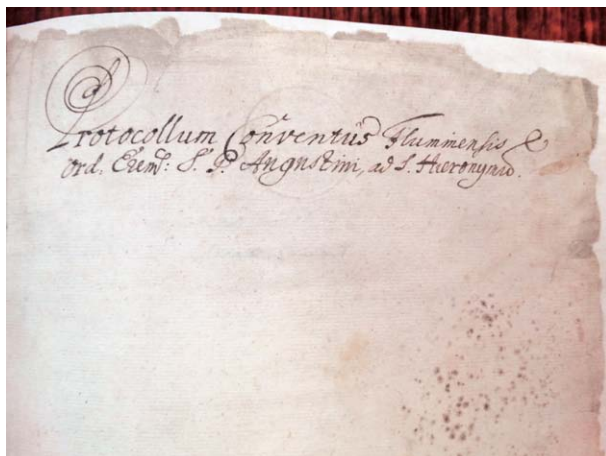 Protocollum Conventus Fluminensis
Ord. Erem: S. P. Augustini, ad S. Hieronymū.